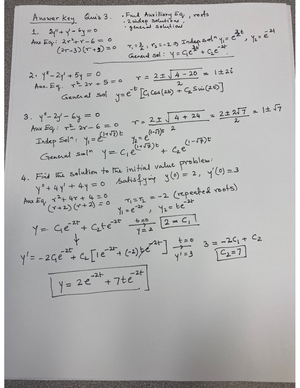 Answer Key Quiz 3. · Find Auxiliary Eq, roots
· 2 indep solutions
· general solution
1. 2y'' + y' - 6y = 0
Aux Eq: 2r² + r - 6 = 0
(2r - 3)(r + 2) = 0 r₁ = 3/2, r₂ = -2 → Indep solⁿ y₁ = e^(3/2 t), y₂ = e^(-2t)
General sol: y = C₁e^(3/2 t) + C₂e^(-2t)
2. y'' - 2y' + 5y = 0
Aux. Eq. r² - 2r + 5 = 0 r = (2 ± √(4 - 20))/2 = 1 ± 2i
General sol y = e^t [C₁ cos(2t) + C₂ sin(2t)]
3. y'' - 2y' - 6y = 0
Aux Eq: r² - 2r - 6 = 0 r = (2 ± √(4 + 24))/2 = (2 ± 2√7)/2 = 1 ± √7
Indep Solⁿ: y₁ = e^((1+√7)t) y₂ = e^((1-√7)t)
General solⁿ y = C₁e^((1+√7)t) + C₂e^((1-√7)t)
4. Find the solution to the initial value problem:
y'' + 4y' + 4y = 0 satisfying y(0) = 2, y'(0) = 3
Aux Eq r² + 4r + 4 = 0
(r+2)(r+2) = 0 r₁ = r₂ = -2 (repeated roots)
y₁ = e^(-2t), y₂ = te^(-2t)
y = C₁e^(-2t) + C₂te^(-2t) t=0 y=2 2 = C₁
y' = -2C₁e^(-2t) + C₂[1e^(-2t) + (-2)te^(-2t)] t=0 y'=3 3 = -2C₁ + C₂
C₂ = 7
y = 2e^(-2t) + 7te^(-2t)